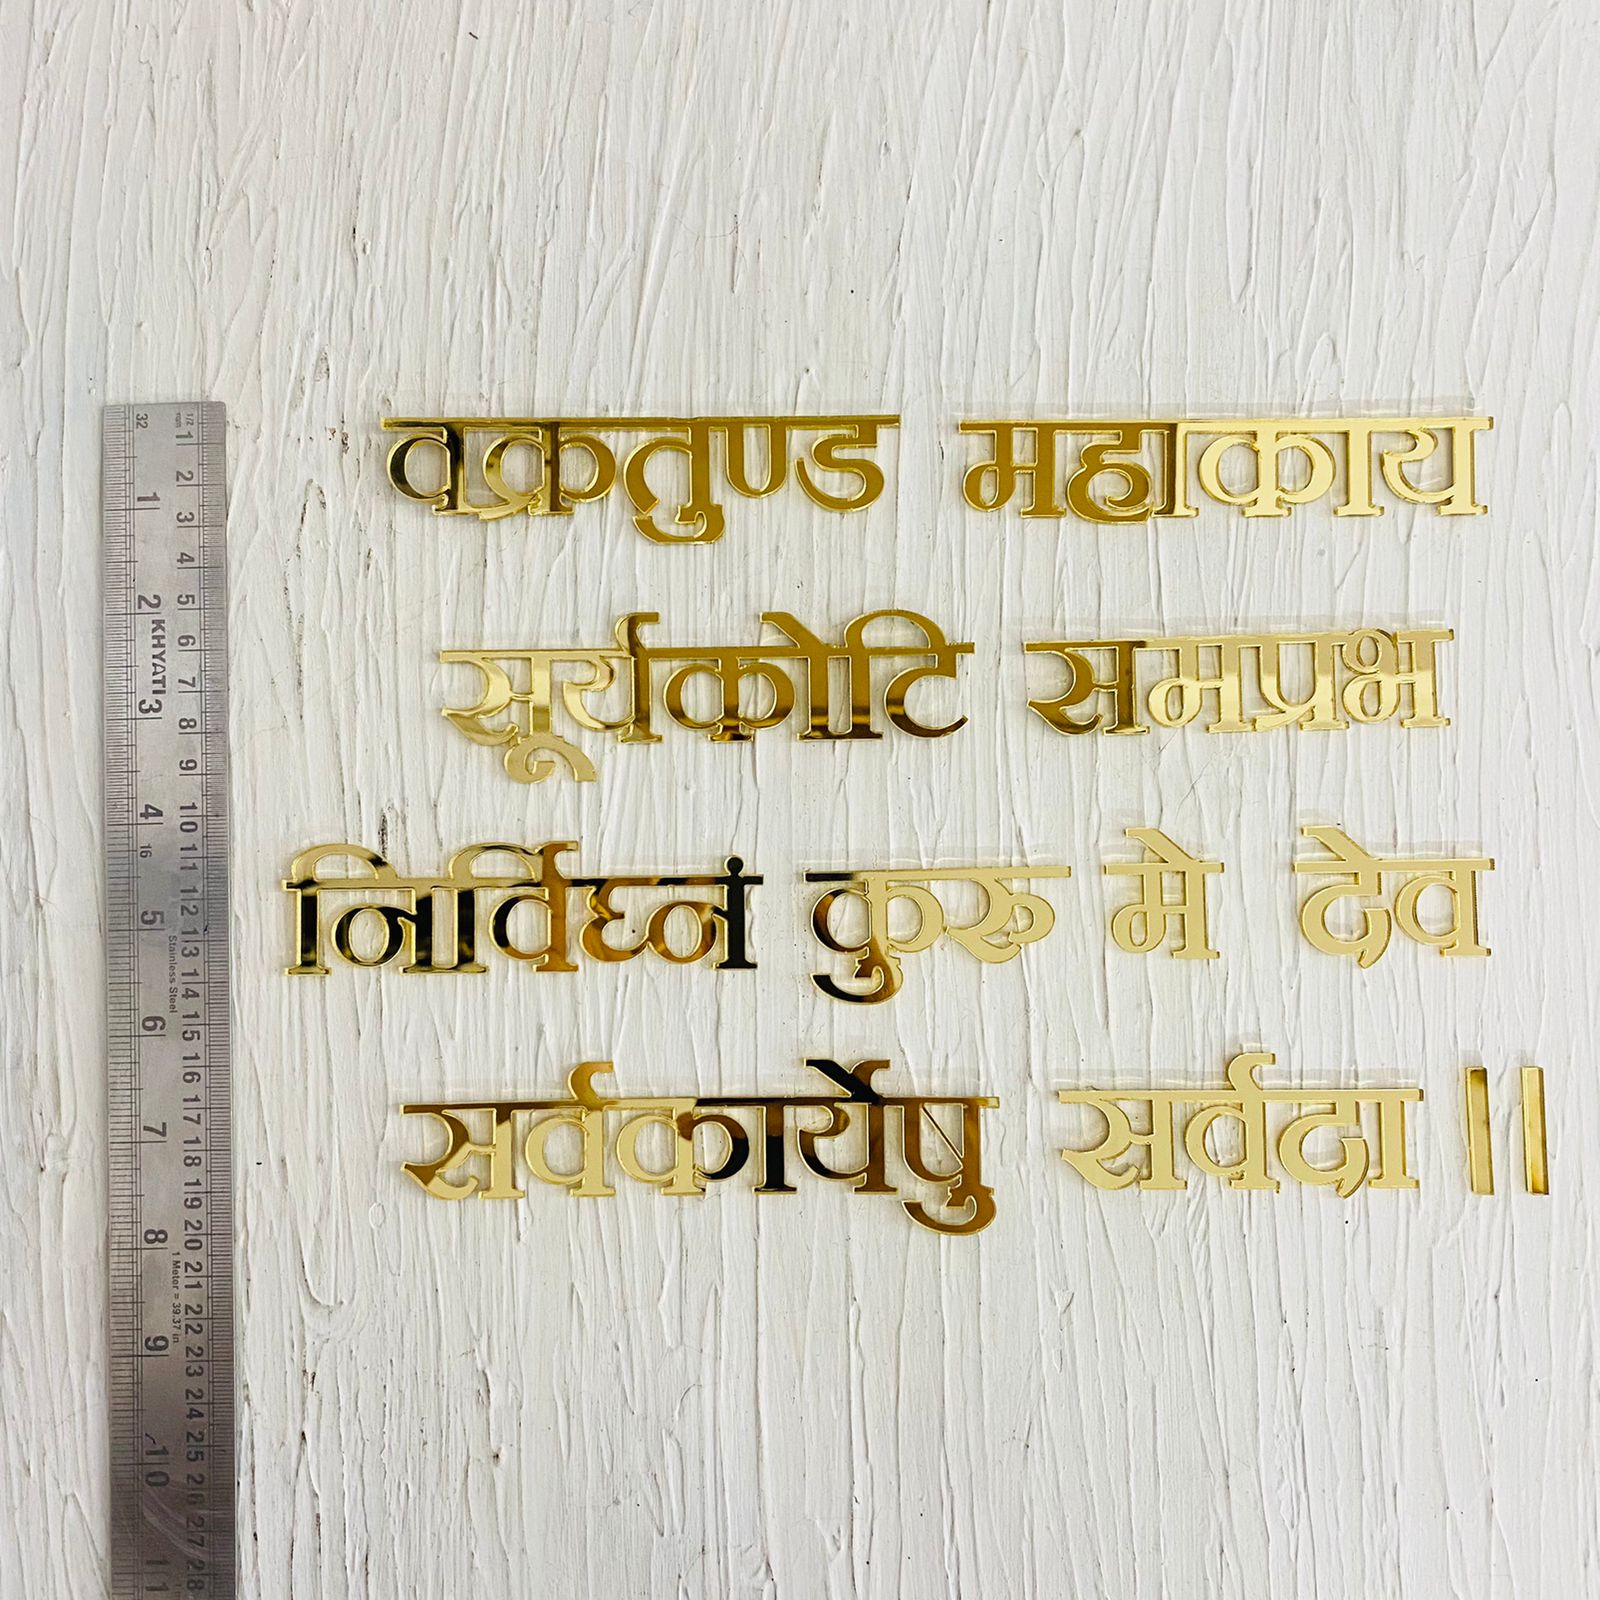 वक्रतुण्ड महाकाय
सूर्यकोटि समप्रभ
निर्विघ्नं कुरु मे देव
सर्वकार्येषु सर्वदा ||
1/2 mm 1 2 3 4 5 6 7 8 9 10 11 12 13 14 15 16 17 18 19 20 21 22 23 24 25 26 27 28
32 1 2 3 4 16 5 6 7 8 9 10 11
KHYATI
Stainless Steel
1 Meter = 39.37 in